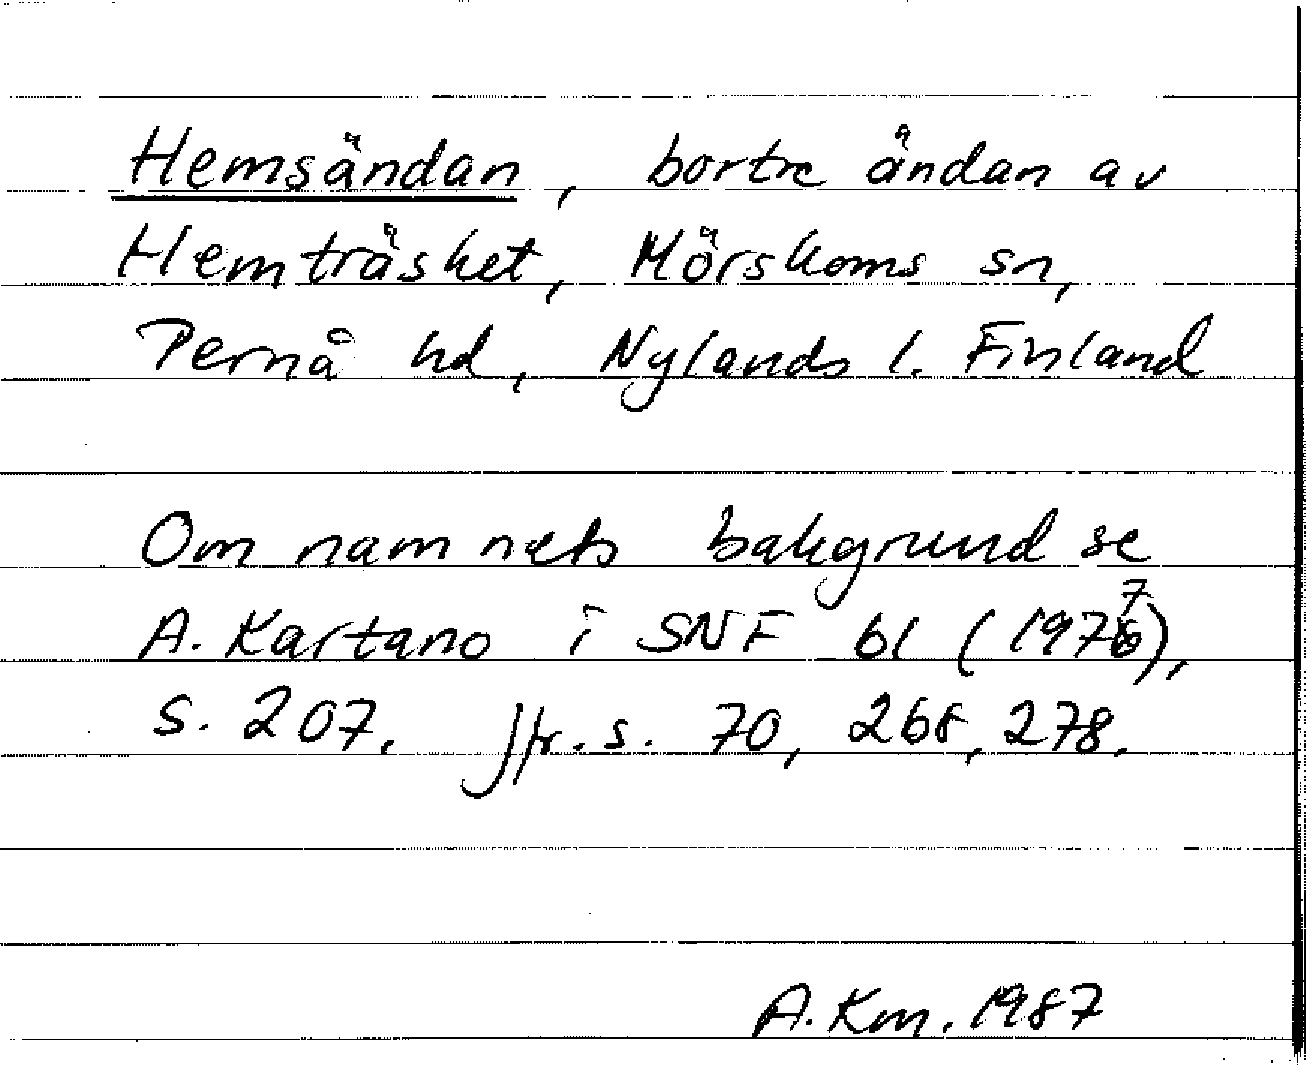 Hemsändan, bortre ändan av
Hemträsket, Mörskoms sn,
Pernå hd, Nylands l. Finland
Om namnets bakgrund se
A. Kartano i SNF 61 (1977),
s. 207. Jfr. s. 70, 268, 278.
A. Km. 1987